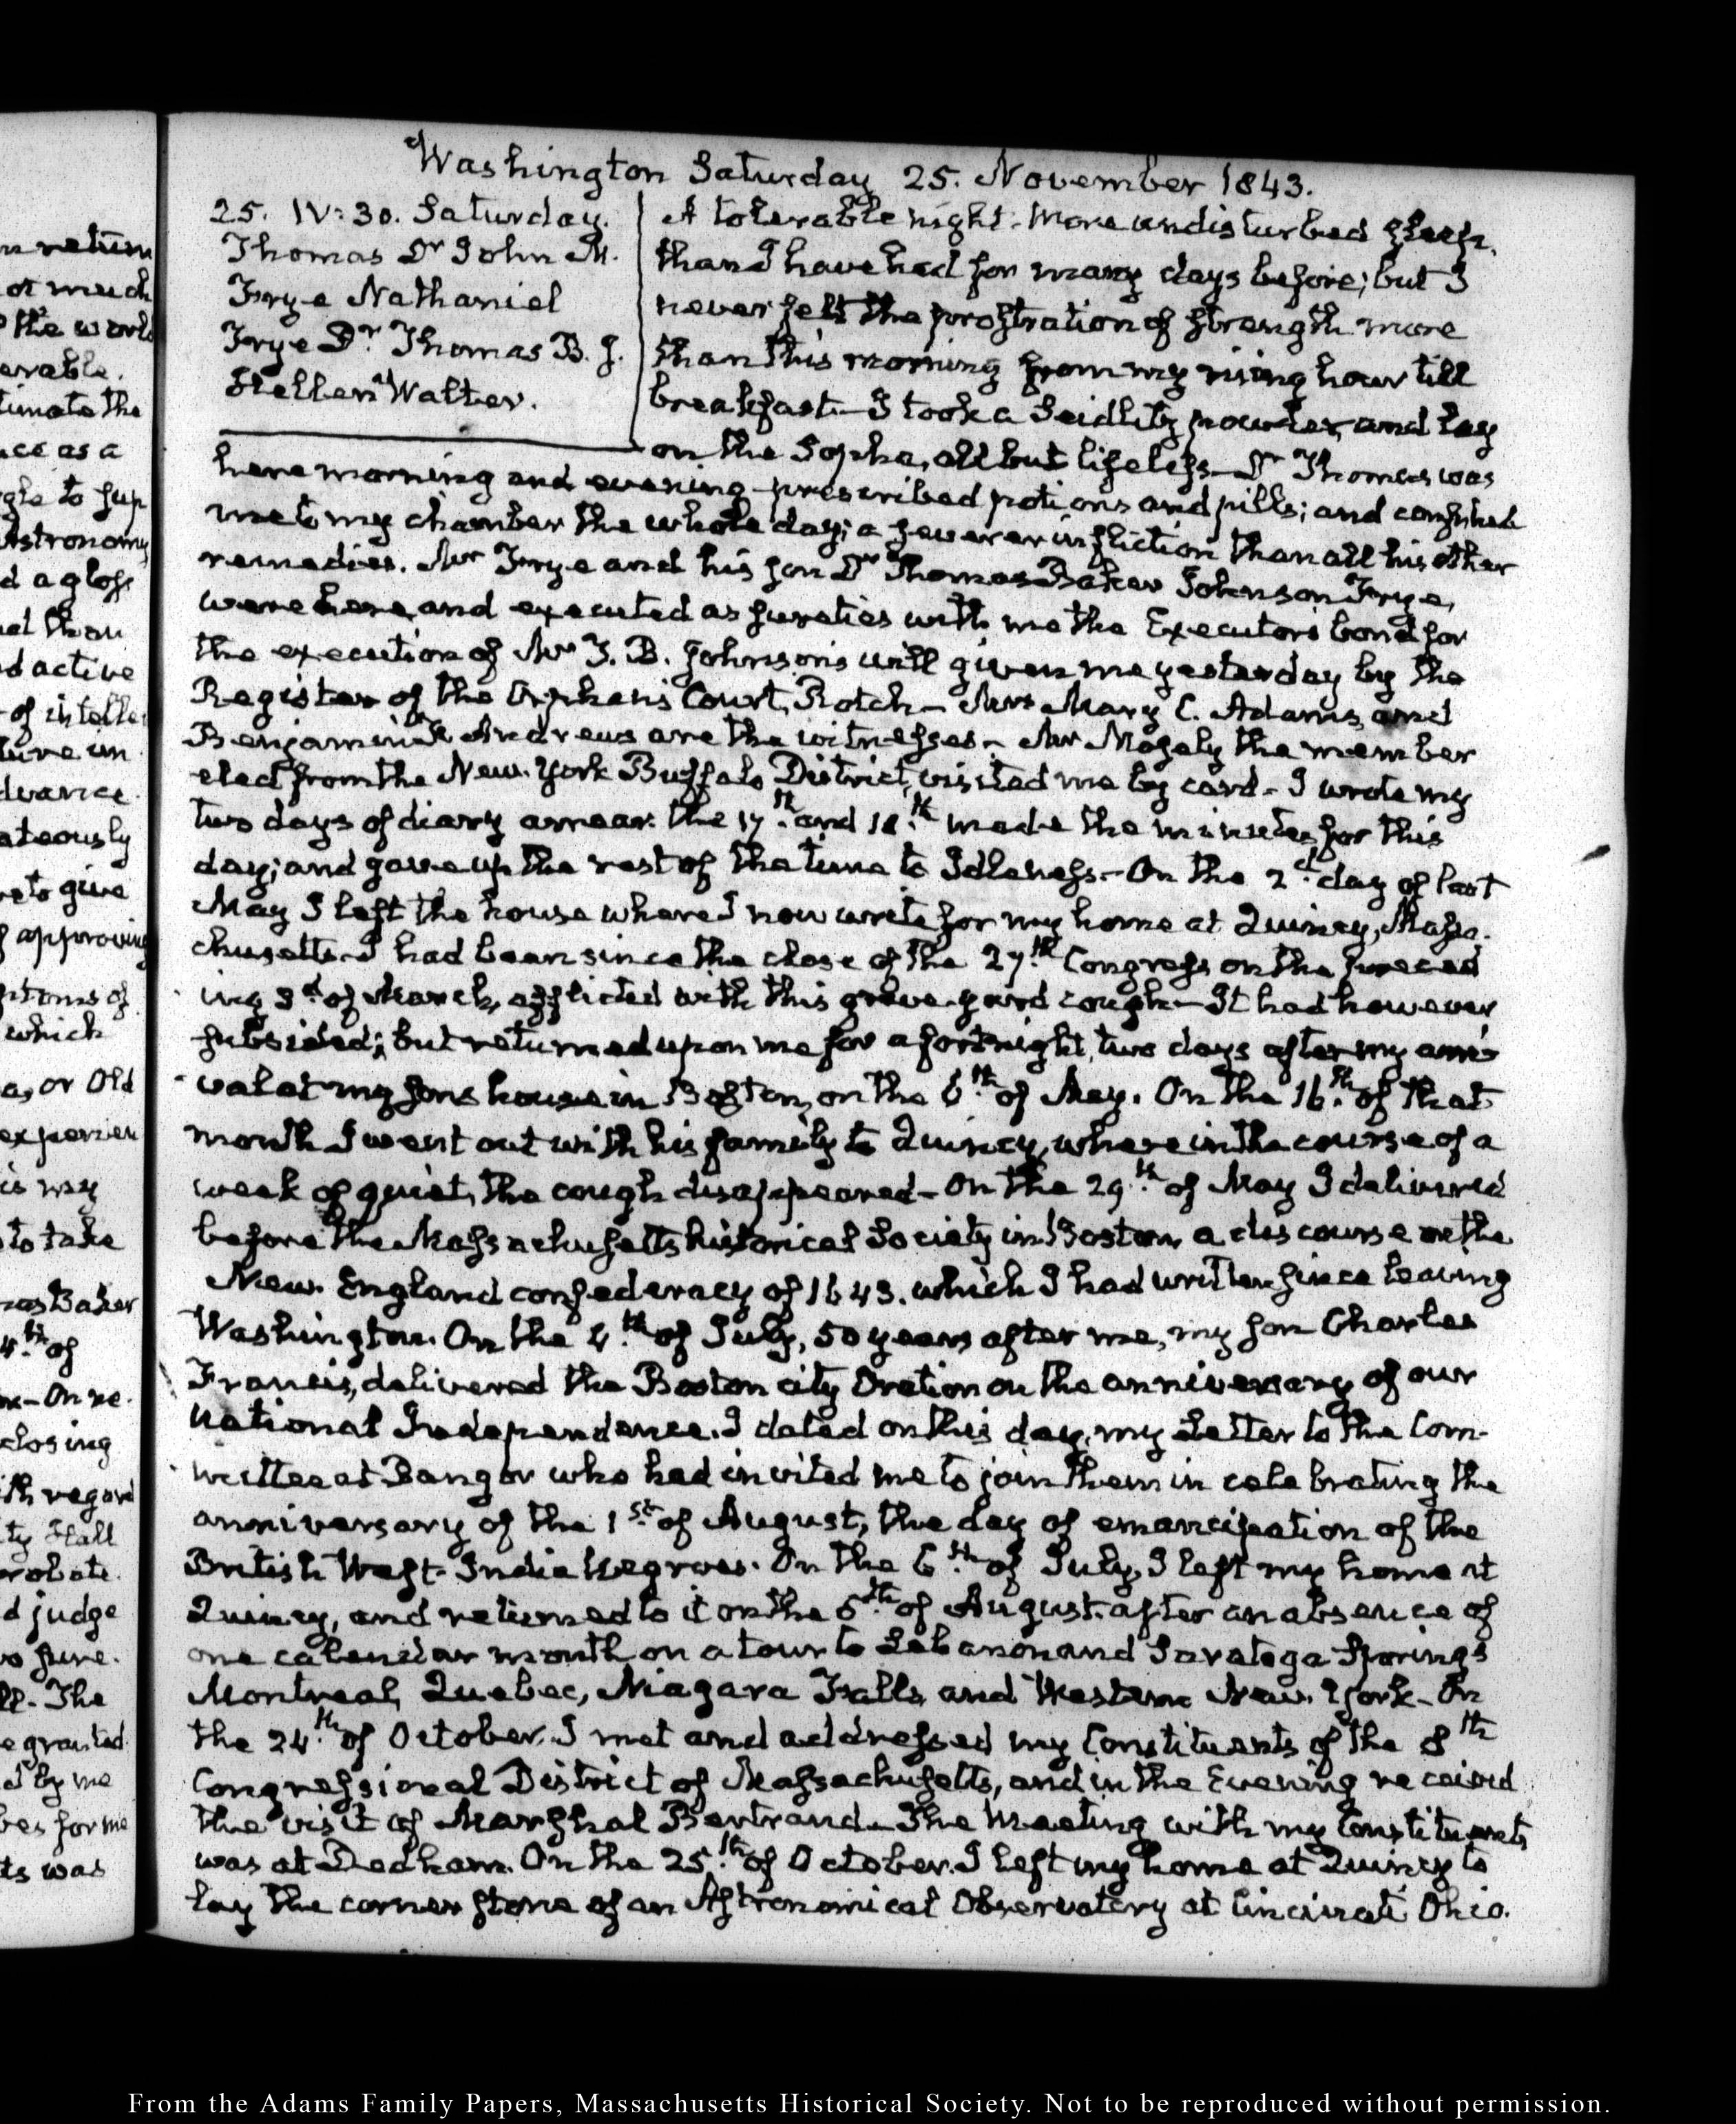 Washington Saturday 25. November 1843.
25. IV:30. Saturday.
Thomas Dr John M.
Frye Nathaniel
Frye Dr Thomas B. J.
Stellen Walter.
A tolerable night. More undisturbed sleep,
than I have had for many days before; but I
never felt the prostration of strength more
than this morning from my rising hour till
breakfast— I took a Seidlitz powder, and lay
on the Sopha, all but lifeless— Dr Thomas was
here morning and evening—prescribed potions and pills; and confined
me to my chamber the whole day; a severer infliction than all his other
remedies. Mr Frye and his son Dr Thomas Baker Johnson Frye,
were here, and executed as sureties with me the Executor's bond for
the execution of Mr T. B. Johnson's will given me yesterday by the
Register of the Orphan's Court, Rotch— Mrs Mary C. Adams, and
Benjamin Andrews are the witnesses— Mr Mosely the member
elect from the New-York Buffalo District, visited me by card— I wrote my
two days of diary arrear. the 17th. and 18th. made the minutes for this
day; and gave up the rest of the time to Idleness.— On the 2d. day of last
May I left the house where I now write for my home at Quincy, Massa-
chusetts— I had been since the close of the 27th. Congress on the preced-
ing 3d. of March, afflicted with this grave-yard cough— It had however
subsided; but returned upon me for a fortnight, two days after my arri-
val at my sons house in Boston, on the 6th. of May. On the 16th. of that
month I went out with his family to Quincy, where in the course of a
week of quiet, the cough disappeared— On the 29th. of May I delivered
before the Massachusetts historical Society in Boston, a discourse on the
New-England confederacy of 1643. which I had written since leaving
Washington. On the 4th. of July, 50 years after me, my son Charles
Francis, delivered the Boston city Oration on the anniversary of our
National Independence. I dated on this day, my Letter to the Com-
mittee at Bangor who had invited me to join them in celebrating the
anniversary of the 1st. of August, the day of emancipation of the
British West-India Negroes. On the 6th. of July, I left my home at
Quincy, and returned to it on the 6th. of August, after an absence of
one calendar month on a tour to Lebanon and Saratoga Springs
Montreal, Quebec, Niagara Falls, and Western New-York— On
the 24th. of October. I met and addressed my Constituents of the 8th
Congressional District of Massachusetts, and in the Evening received
the visit of Marshal Bertrand— The Meeting with my Constituents
was at Dedham. On the 25th. of October. I left my home at Quincy to
lay the corner stone of an Astronomical Observatory at Cincinnati Ohio.
From the Adams Family Papers, Massachusetts Historical Society. Not to be reproduced without permission.